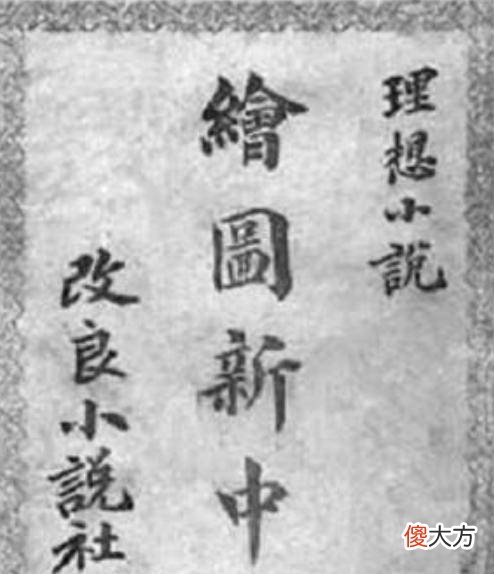 理想小說
繪圖新中
改良小說社
傻大方